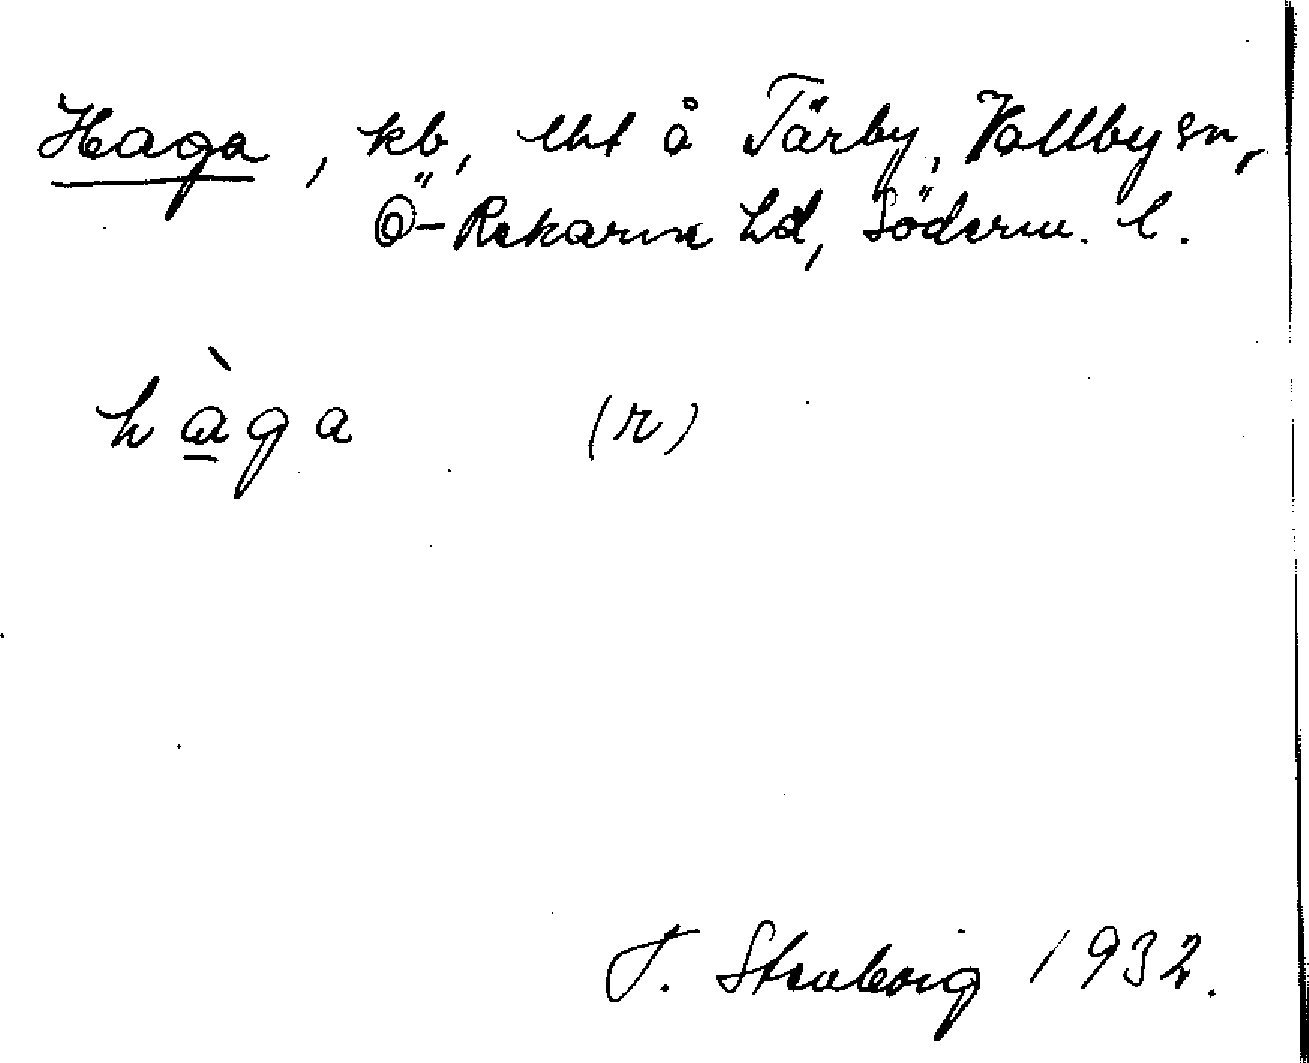 Haga, kb, lht å Tärby, Vallby sn,
Ö-Rekarne hd, Söderm. l.
hàga (r)
1932.